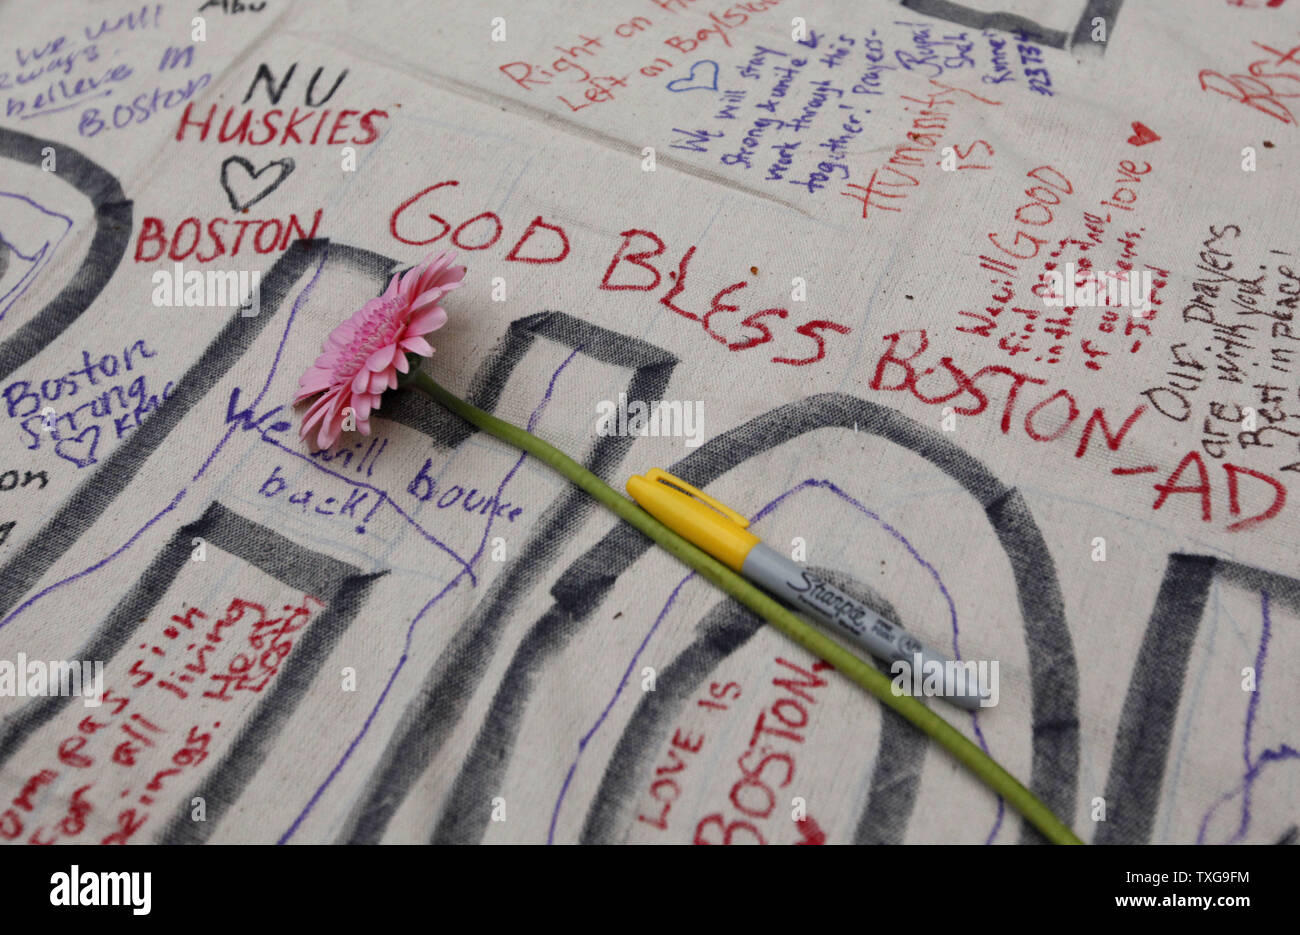 Abu
We will
always
believe in
Boston
NU
HUSKIES
BOSTON
Right on
Left on Boylston
We will stay
strong & unite &
work through this
together! Prayers-
Rupal
Shah
Runner
#23734
Humanity
is
GOD BLESS BOSTON
-AD
We will
GOOD
find
in the
of our hearts. love
-Jared
Our prayers
are with you.
Rest in peace!
Boston
Strong
on
We will bounce
back!
Sharpie
FINE POINT
compassion
for all living
beings. Heal
Boston
LOVE IS
BOSTON
alamy
Image ID: TXG9FM
www.alamy.com